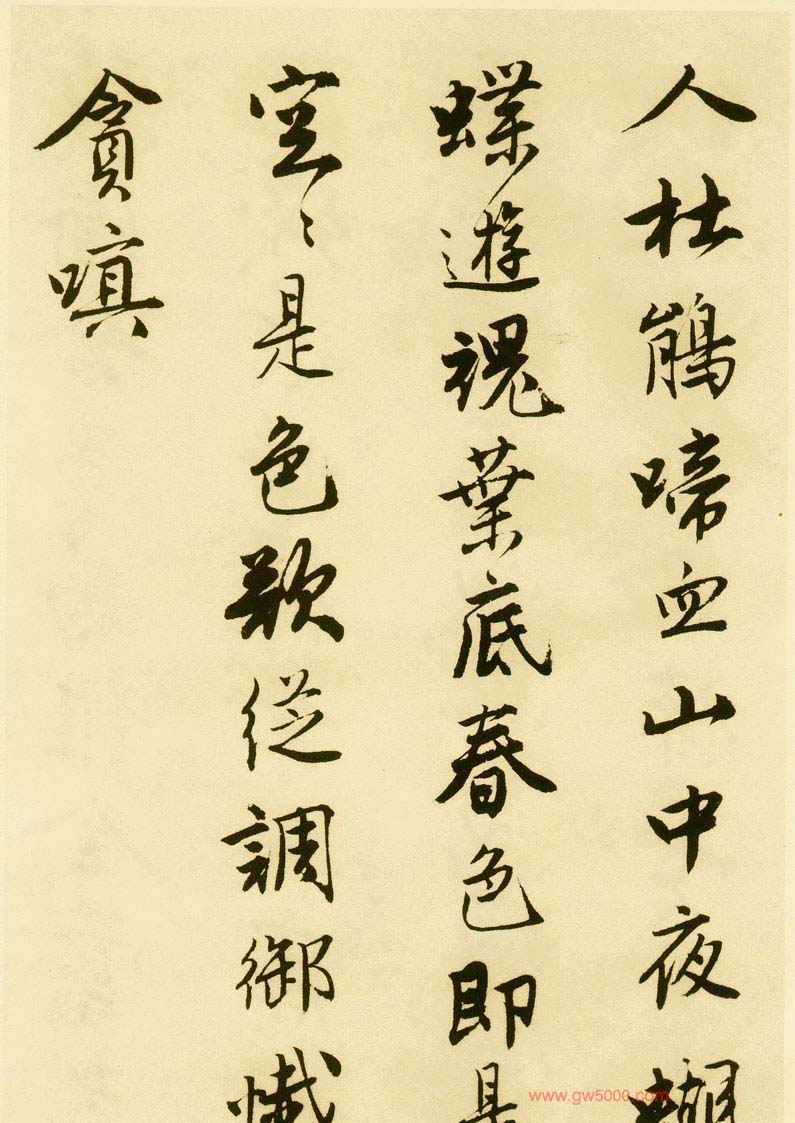 人杜鵑啼血山中夜蝴
蝶遊魂葉底春色即是
空〻是色欵從調御懺
貪嗔
www.gw5000.com